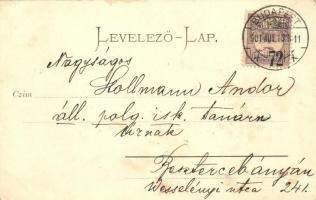 LEVELEZŐ-LAP.
BUDAPEST
72
Nagyságos
Hollmann Andor
Czím
áll. polg. isk. tanárn
Úrnak
Besztercebányán
Wesselényi utca 241.